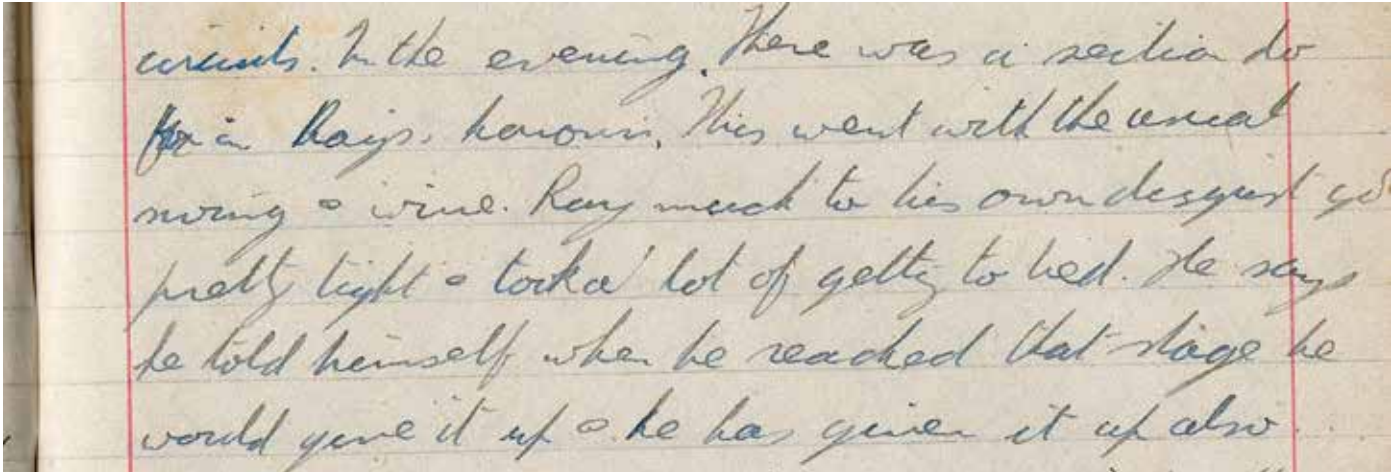 circuits. In the evening. There was a section do
for in Rays. honour. This went with the usual
swing & wine. Ray much to his own disgust got
pretty tight & took a lot of getty to bed. He says
he told himself when he reached that stage he
would give it up & he has given it up also